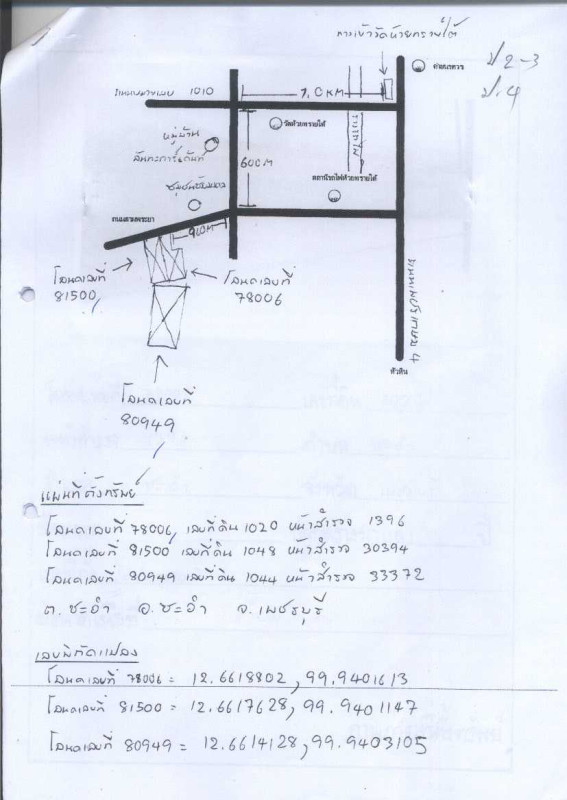 ทางเข้าวัดห้วยทรายใต้
ป.2-3
ป.4
ค่ายนเรศวร
1010
1.0 KM
วัดห้วยทรายใต้
หมู่บ้าน
600M
ทางรถไฟ
สถานีรถไฟห้วยทรายใต้
ถนนเพชรเกษม 4
โฉนดเลขที่
81500
โฉนดเลขที่
78006
หัวหิน
โฉนดเลขที่
80949
แผนที่ตั้งทรัพย์
โฉนดเลขที่ 78006, เลขที่ดิน 1020 หน้าสำรวจ 1396
โฉนดเลขที่ 81500 เลขที่ดิน 1048 หน้าสำรวจ 30394
โฉนดเลขที่ 80949 เลขที่ดิน 1044 หน้าสำรวจ 33372
ต. ชะอำ อ. ชะอำ จ. เพชรบุรี
เลขพิกัดแปลง
โฉนดเลขที่ 78006 = 12.6618802, 99.9401613
โฉนดเลขที่ 81500 = 12.6617628, 99.9401147
โฉนดเลขที่ 80949 = 12.6614128, 99.9403105